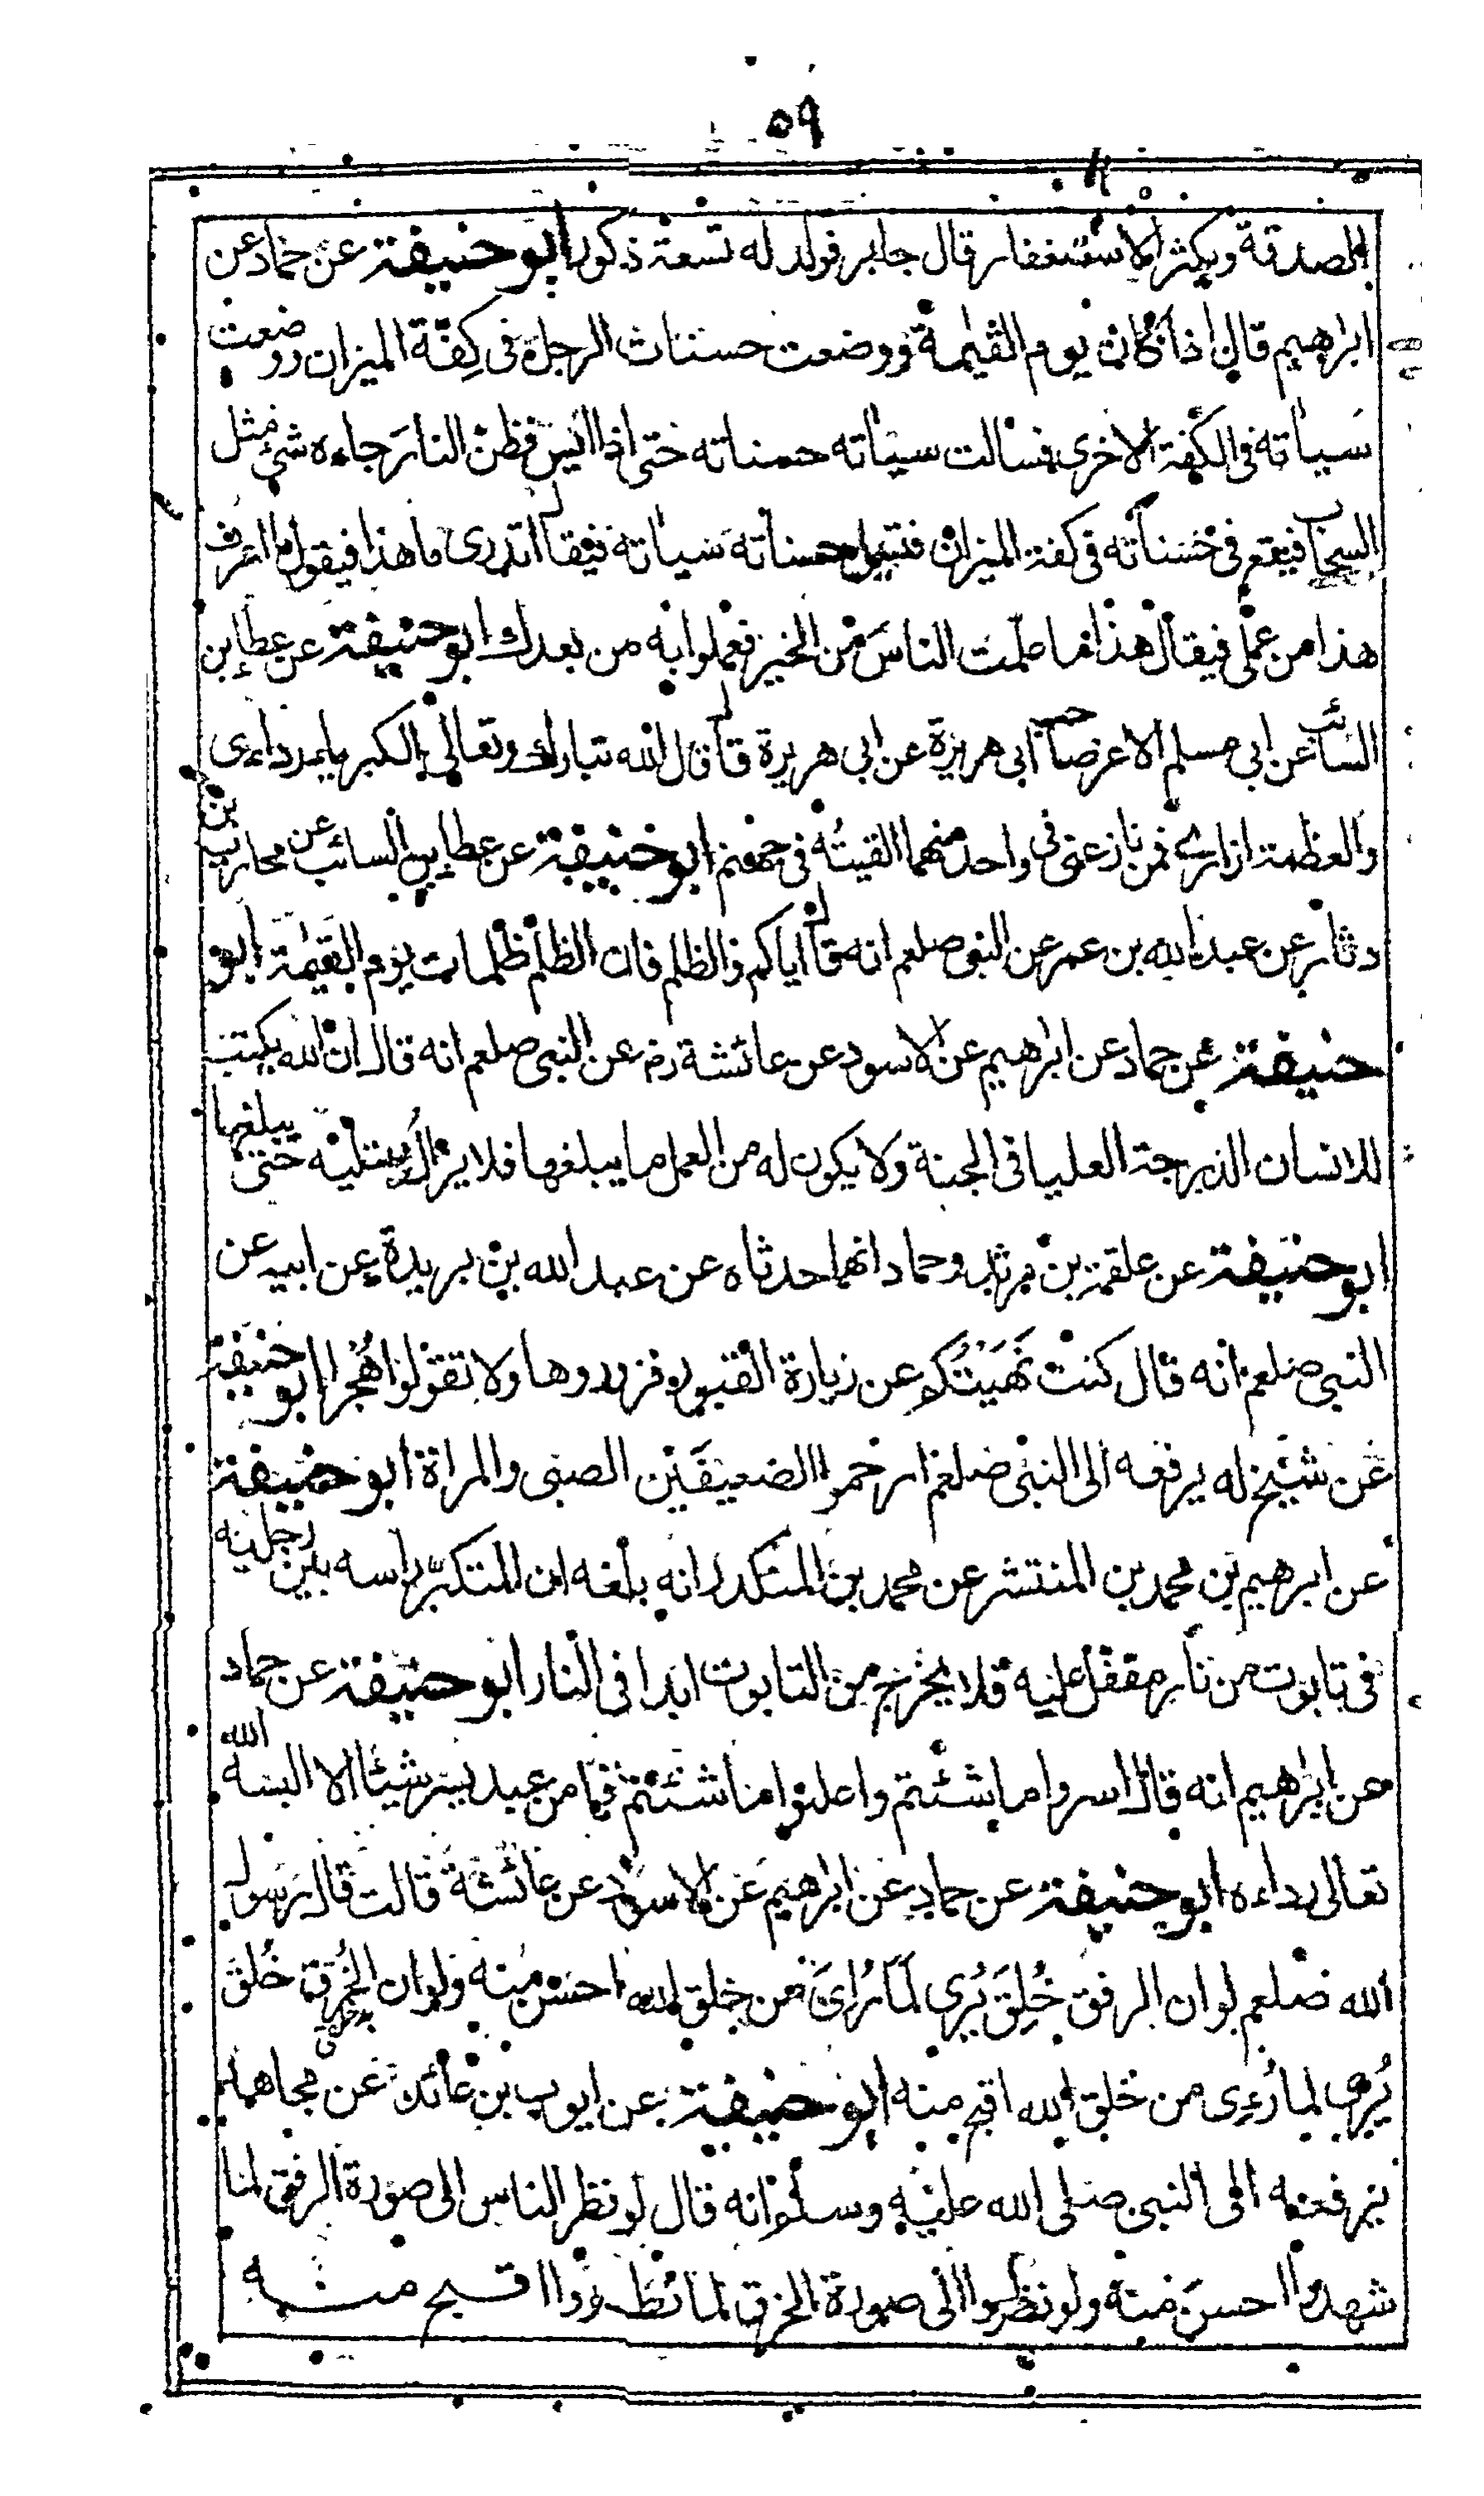 ٥٩
الصدقة ويكثر الاستغفار قال جابر فولد له تسعة ذكور ابو حنيفة عن حماد عن
ابرهيم قال اذا كان يوم القيمة ووضعت حسنات الرجل فى كِفّة الميزان ووضعت
سياته فى الكفة الاخرى فسالت سياته حسناته حتى اذا ايس فظن النار جاءه شئ مثل
السحاب فيقع فى حسناته فى كفة الميزان فتميل حسناته سياته فيقال اتدرى ما هذا فيقول ما اعرف
هذا من عملى فيقال هذا ما علّمت الناس من الخير فعملوا به من بعدك ابو حنيفة عن عطا بن
السائب عن ابى مسلم الاغر صاحب ابى هريرة عن ابى هريرة قال قال الله تبارك وتعالى الكبرياء ردائى
والعظمة ازارى فمن نازعنى فى واحد منهما القيته فى جهنم ابو حنيفة عن عطا بن السائب عن محارب بن
دثار عن عبد الله بن عمر عن النبى صلعم انه قال اياكم والظلم فان الظلم ظلمات يوم القيمة ابو
حنيفة عن حماد عن ابرهيم عن الاسود عن عائشة رض عن النبى صلعم انه قال ان الله يكتب
للانسان الدرجة العليا فى الجنة ولا يكون له من العمل ما يبلغها فلا يزال يبتليه حتى يبلغها
ابو حنيفة عن علقمة بن مرثد وحماد انهما حدثاه عن عبد الله بن بريدة عن ابيه عن
النبى صلعم انه قال كنت نَهَيْتُكم عن زيارة القبور فزوروها ولا تقولوا هُجرا ابو حنيفة
عن شيخ له يرفعه الى النبى صلعم ارحموا الضعيفين الصبى والمراة ابو حنيفة
عن ابرهيم بن محمد بن المنتشر عن محمد بن المنكدر انه بلغه ان المتكبّر راسه بين رجليه
فى تابوت من نار مقفل عليه فلا يخرج من التابوت ابدا فى النار ابو حنيفة عن حماد
عن ابرهيم انه قال اسروا ما شئتم واعلنوا ما شئتم فما من عبد يسر شيئا الا البسه الله
تعالى رداءه ابو حنيفة عن حماد عن ابرهيم عن الاسود عن عائشة قالت قال رسول
الله صلعم لو ان الرفق خُلِقَ يُرى لما رُاىَ من خلق الله احسن منه ولو ان الخُرق خُلق
يُرى لما رُءِى من خلق الله اقبح منه ابو حنيفة عن ايوب بن عائد عن مجاهد
يرفعه الى النبى صلى الله عليه وسلم انه قال لو نظر الناس الى صورة الرفق لما
شهدوا احسن منه ولو نظروا الى صورة الخرق لما نظروا اقبح منه